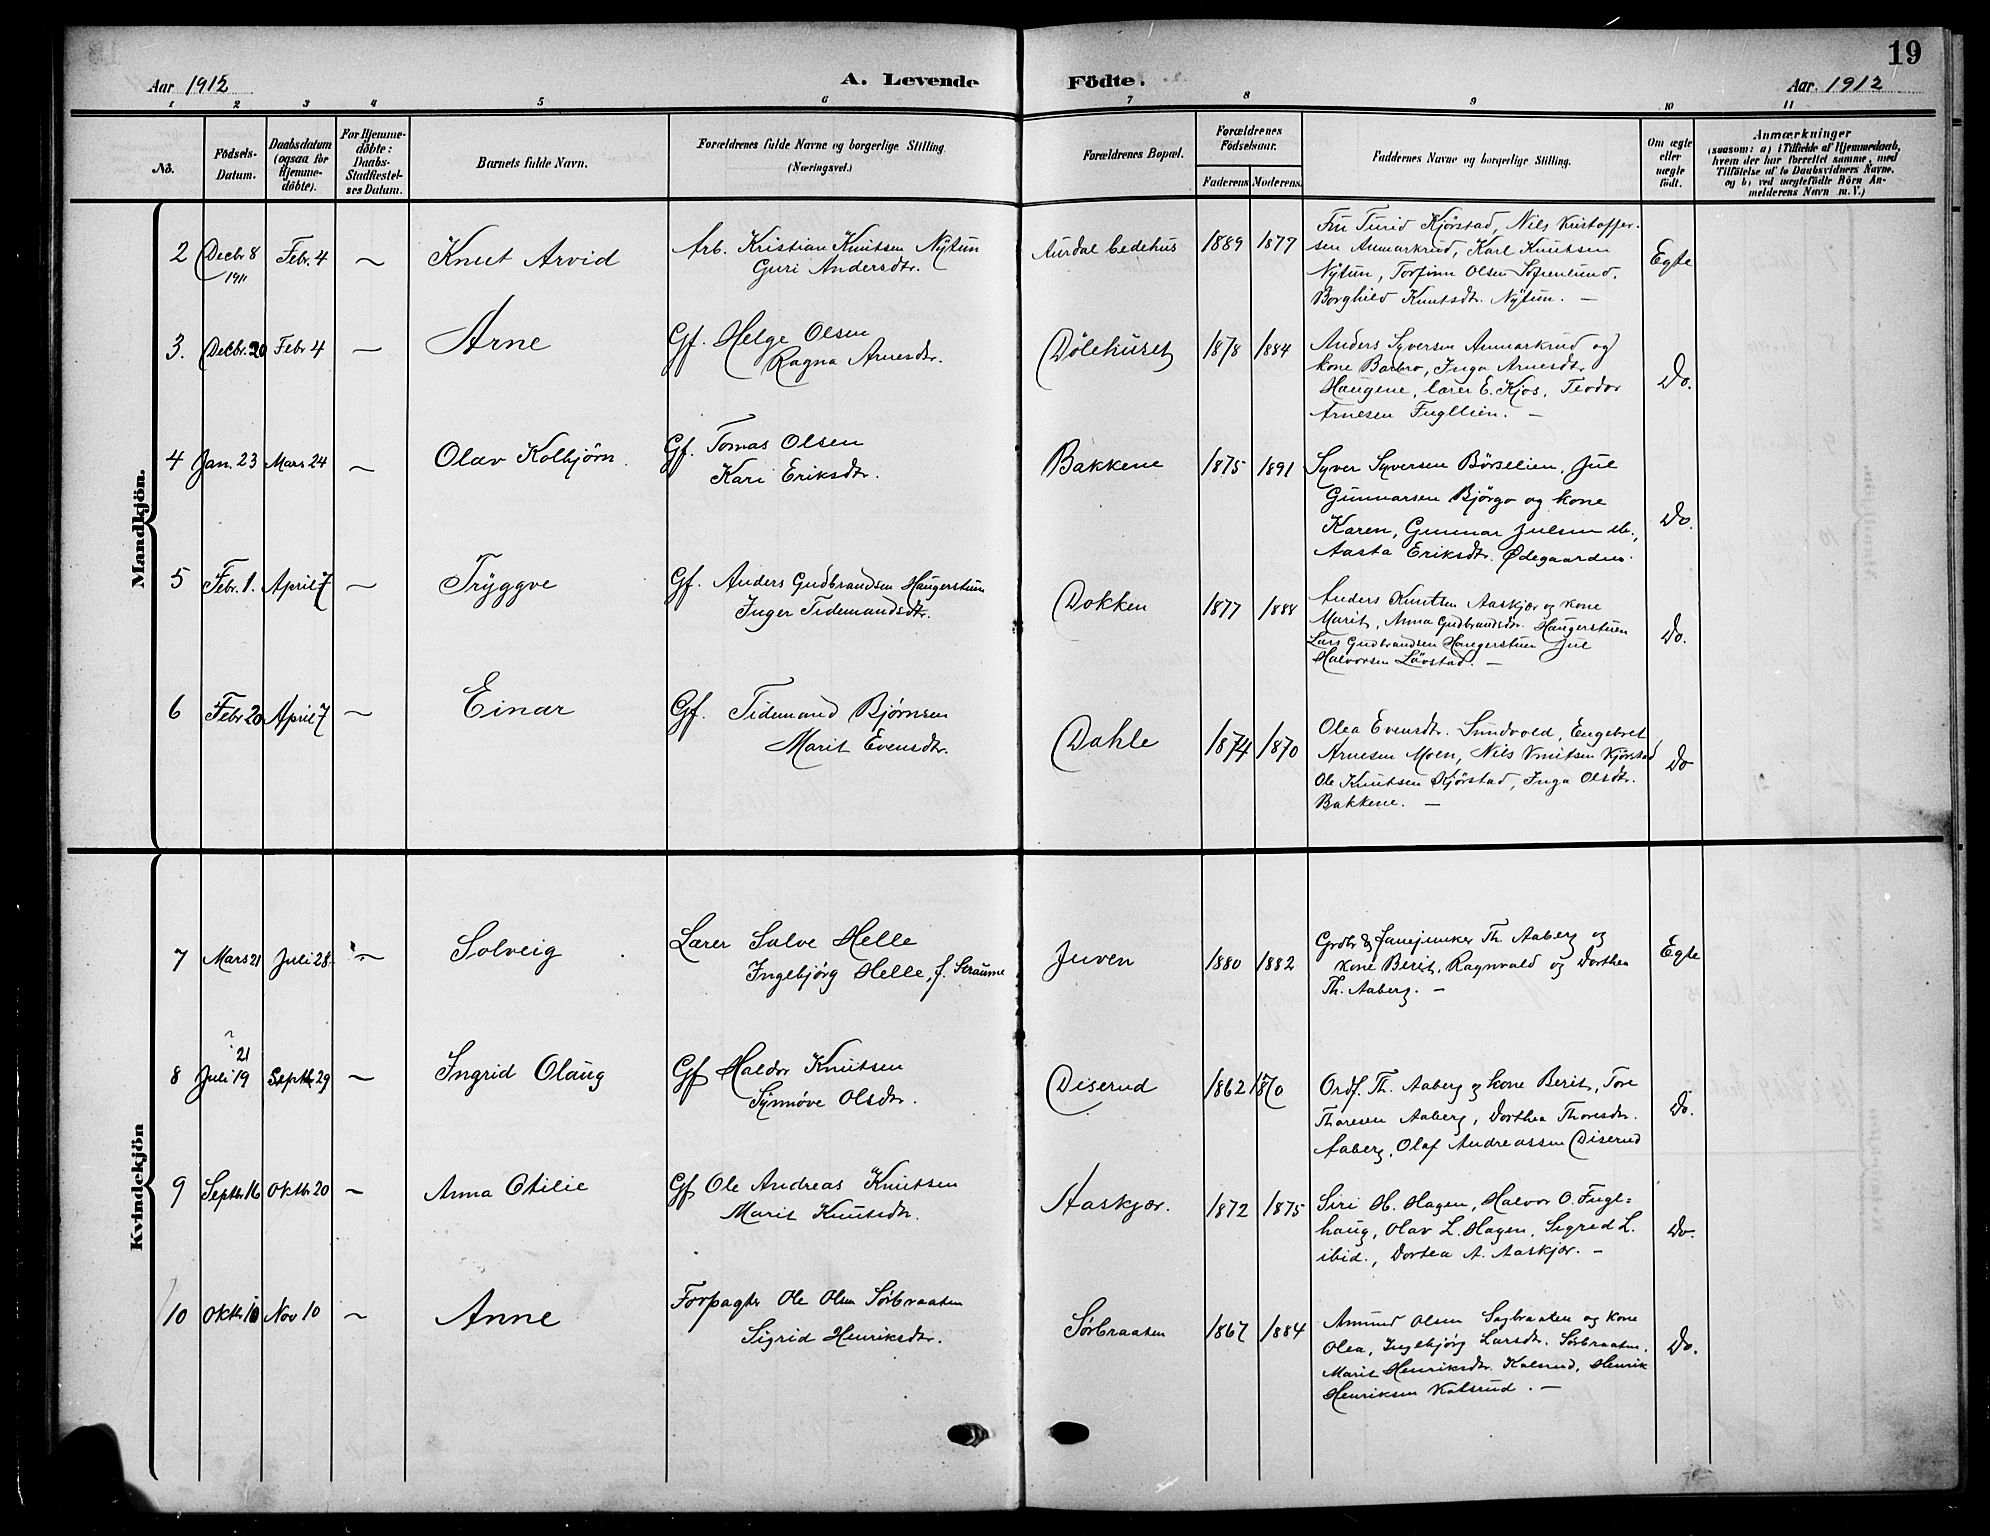 19
Aar 1912
A. Levende
Födte.
Aar 1912
1 2 3 4 5 6 7 8 9 10 11
No.
Födsels-
Datum.
Daabsdatum
(ogsaa for
Hjemme-
döbte).
For Hjemme-
döbte:
Daabs-
Stadfæstel-
ses Datum.
Barnets fulde Navn.
Forældrenes fulde Navne og borgerlige Stilling
(Næringsvei.)
Forældrenes Bopæl.
Forældrenes
Födselsaar.
Faderens Moderens
Faddernes Navne og borgerlige Stilling.
Om ægte
eller
uægte
født.
Anmærkninger
(saasom: a) i Tilfælde af Hjemmedaab,
hvem der har forrettet samme, med
Tilföielse af to Daabsvidners Navne,
og b) ved uægtefödte Börn An-
melderens Navn m. V.)
Mandkjön.
2 Decbr 8
1911
Febr. 4 — Knut Arvid
Arb. Kristian Knutsen Nÿtun
Guri Andersdtr.
Aurdal bedehus 1889 1877
Fru Turid Kjörstad, Nils Kristoffer-
sen Anmarkrud, Karl Knutsen
Nÿtun, Torfinn Olsen Sofienlund,
Borghild Knutsdtr. Nÿtun. —
Egte
3. Decbr. 20 Febr 4 — Arne
Gf. Helge Olsen
Ragna Arnesdtr.
Dölehuset 1878 1884
Anders Syversen Anmarkrud og
kone Barbro, Inga Arnesdtr
Haugene, lærer E. Kjos, Teodor
Arnesen Fugllien. —
Do.
4 Jan. 23 Mars 24 — Olav Kolbjørn.
Gf. Tomas Olsen
Kari Eriksdtr.
Bakkene 1875 1891
Syver Syversen Börselien, Jul
Gunnarsen Björgo og kone
Karen, Gunnar Julsen
Aasta Eriksdtr. Ødegaarden.
Do.
5 Febr. 1. April 7 — Trÿggve
Gf. Anders Gudbrandsen Haugerstuen
Inger Tidemandsdtr.
Dokken 1877 1888
Anders Knutsen Aaskjær og kone
Marit, Anna Gudbrandsdtr. Haugerstuen
Lars Gudbrandsen Haugerstuen Jul
Halvorsen Lövstad. —
Do.
6 Febr 20 April 7 — Einar
Gf. Tidemand Bjørnsen
Marit Evensdtr.
Dahle 1874 1870
Olea Evensdtr. Sundvold, Engebret
Arnesen Moen, Nils Knutsen Kjörstad
Ole Knutsen Kjörstad, Inga Olsdtr.
Bakkene. —
Do
Kvindekjön
7 Mars 21 Juli 28 — Solveig
Lærer Salve Helle
Ingebjörg Helle, f. Straume
Juven 1880 1882
Grdbr &
Th. Aaberg og
kone Berit, Ragnvald og Dorthea
Th. Aaberg. —
Egte
?
21
8 Juli 19 Septb 29 — Ingrid Olaug
Gf Haldor Knutsen
Synnöve Olsdtr.
Diserud 1862 1870
Ordf. Th. Aaberg og kone Berit, Tore
Thoresen Aaberg, Dorthea Thoresdtr.
Aaberg, Olaf Andreassen Diserud
Do.
9 Septbr 16 Oktbr 20 — Anna Otilie
Gf Ole Andreas Knutsen
Marit Knutsdtr.
Aaskjær. 1872 1875
Siri H. Hagen, Halvor O. Fugl-
haug, Olav L. Hagen, Sigrid L.
ibid., Dortea A. Aaskjær. —
Do.
10 Oktbr 10 Nov 10 — Anne
Forpagter Ole Olsen Sørbraaten
Sigrid Henriksdtr.
Sørbraaten 1867 1884
Amund Olsen Sagbraaten og kone
Olea, Ingebjörg Larsdtr. Sørbraaten,
Marit Henriksdtr. Kalsrud, Henrik
Henriksen Kalsrud. —
Do.